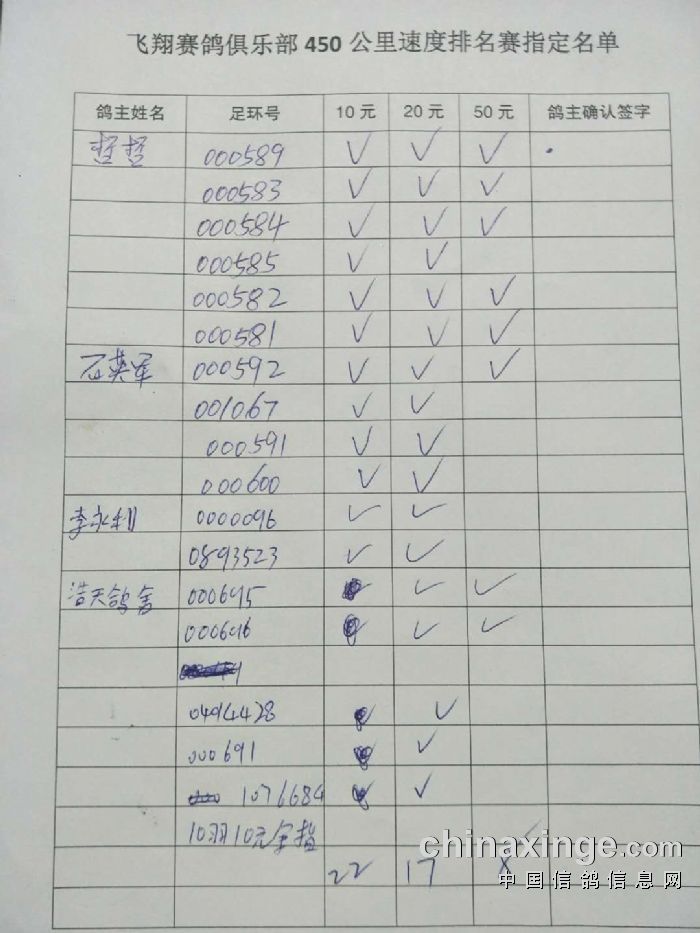 飞翔赛鸽俱乐部 450 公里速度排名赛指定名单
鸽主姓名 足环号 10 元 20 元 50 元 鸽主确认签字
哲哲 000589 ✓ ✓ ✓
000583 ✓ ✓ ✓
000584 ✓ ✓ ✓
000585 ✓ ✓
000582 ✓ ✓ ✓
000581 ✓ ✓ ✓
石英军 000592 ✓ ✓ ✓
001067 ✓ ✓
000591 ✓ ✓
000600 ✓ ✓
李永利 0000096 ✓ ✓
0893523 ✓ ✓
浩天鸽舍 000695 ✓ ✓
000696 ✓ ✓
0494428 ✓
000691 ✓
1076684 ✓
10羽10元全指
22 17 X
chinaxinge.com
中国信鸽信息网